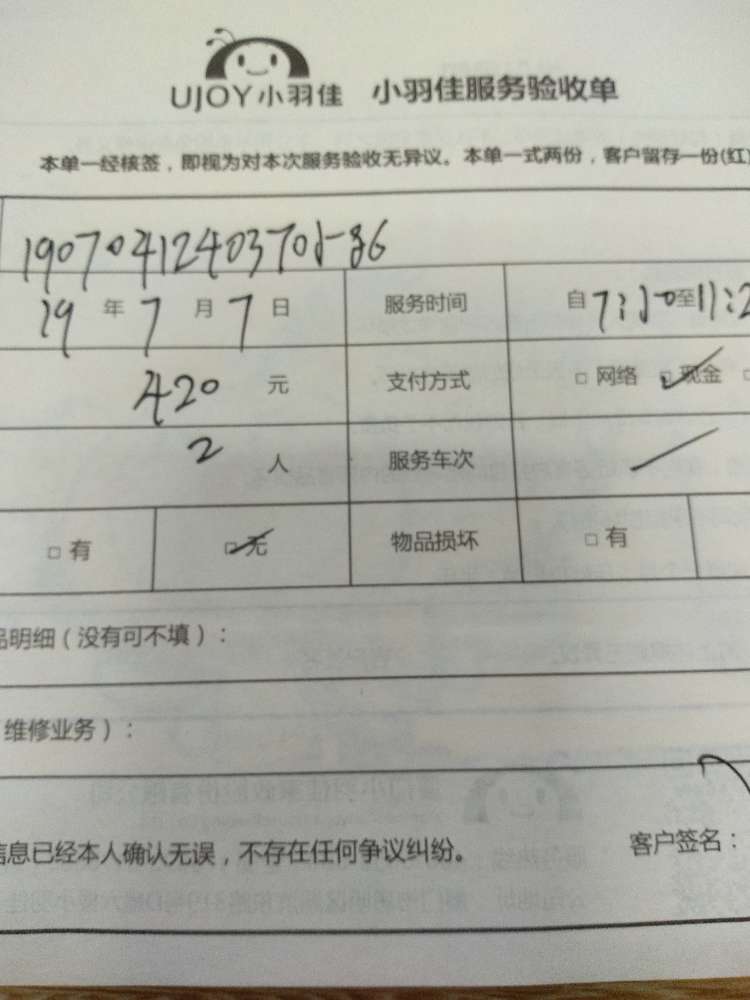 UJOY小羽佳 小羽佳服务验收单
本单一经核签，即视为对本次服务验收无异议。本单一式两份，客户留存一份(红)
19 年 7 月 7 日 服务时间 自 至
420 元 支付方式 □ 网络 □ 现金
2 人 服务车次
□ 有 □ 无 物品损坏 □ 有
品明细（没有可不填）：
维修业务）：
信息已经本人确认无误，不存在任何争议纠纷。 客户签名：